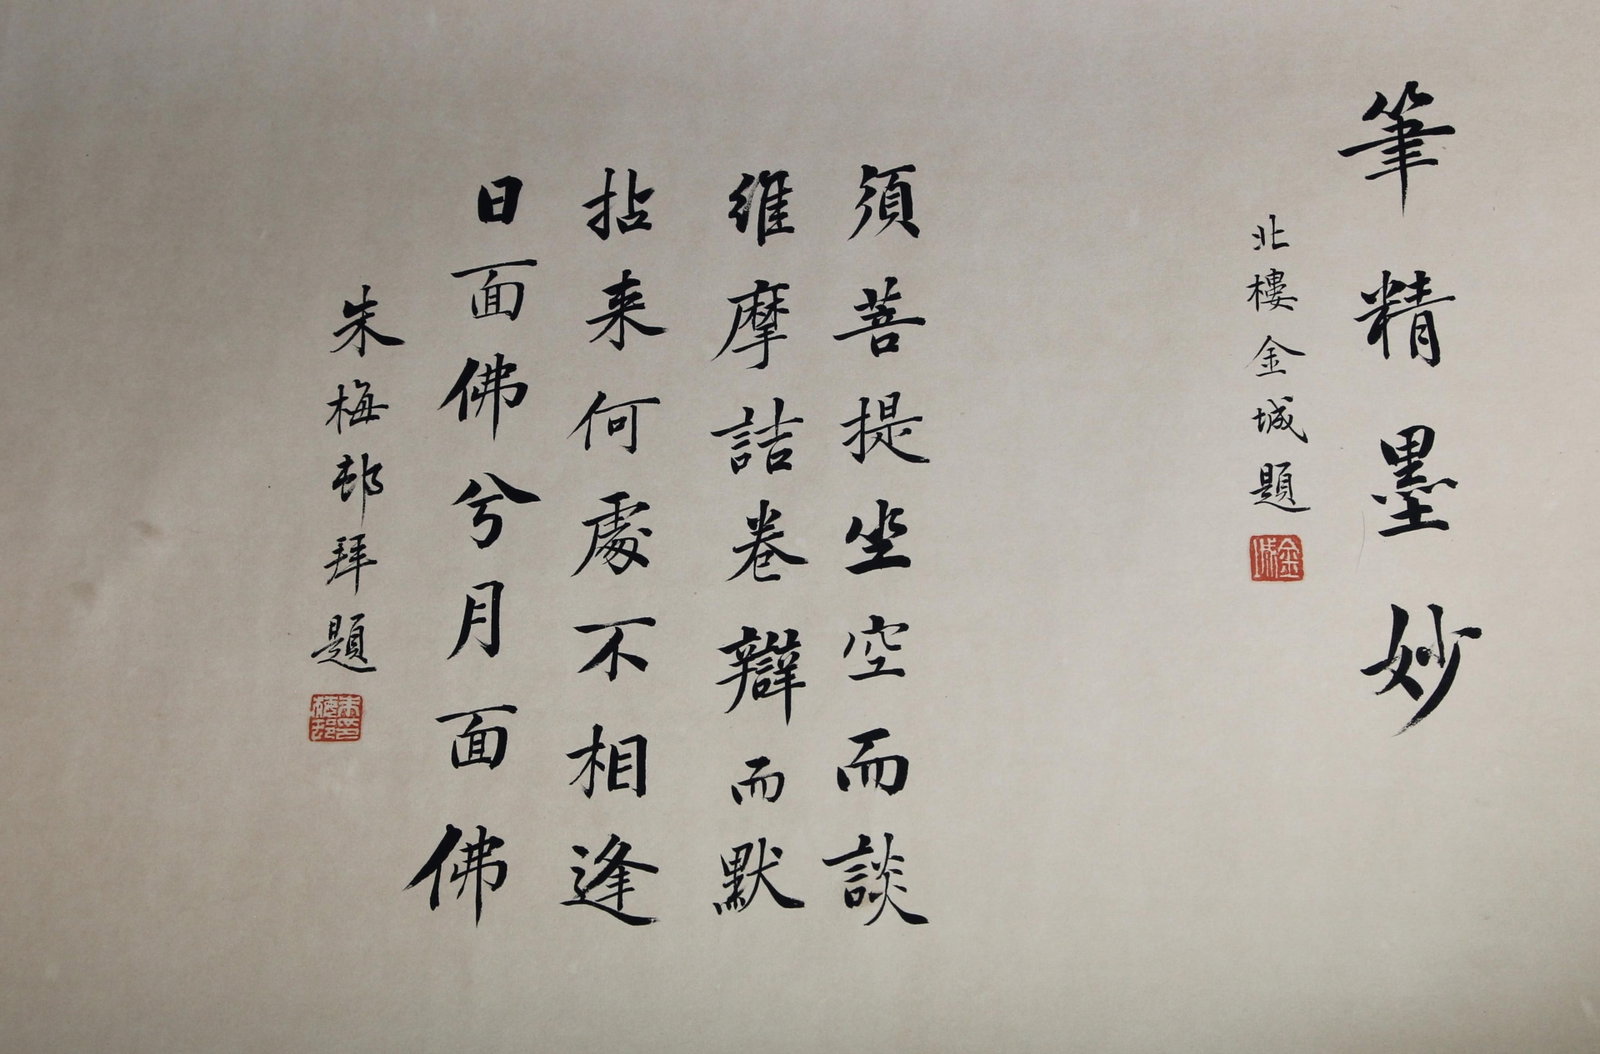 筆精墨妙
北樓金城題
金城
須菩提坐空而談
維摩詰卷辯而默
拈来何處不相逢
日面佛兮月面佛
朱梅邨拜題